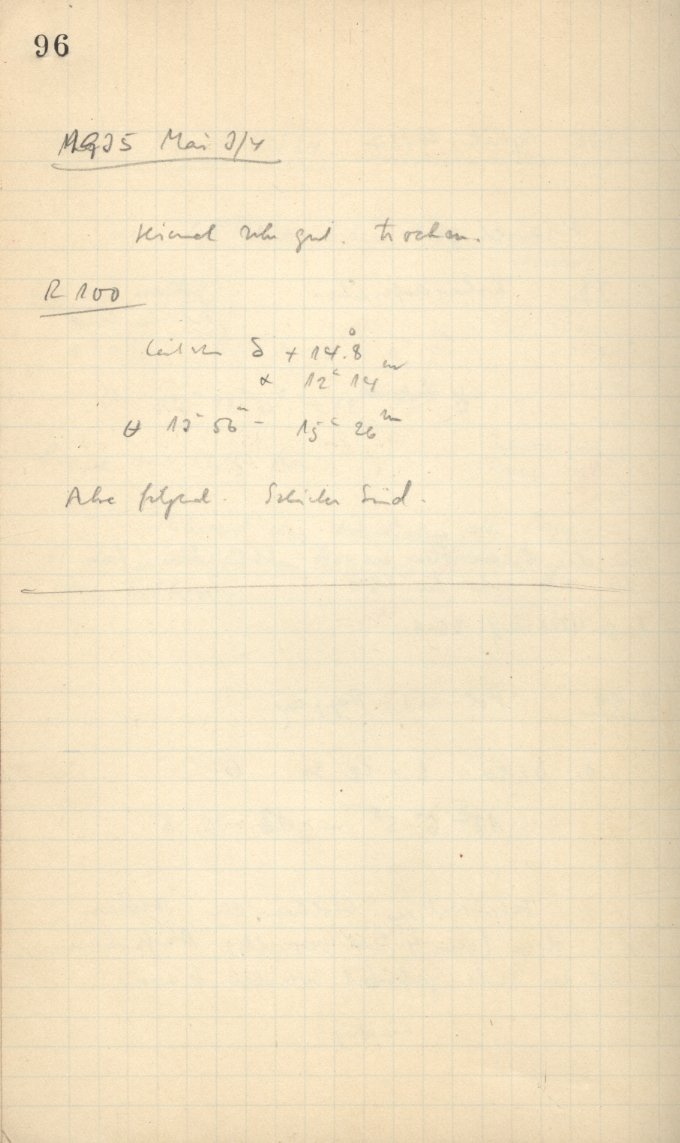 96
1925 Mai 3/4
Himmel sehr gut. trocken.
R 100
Leitstern δ + 14.8°
α 12h 14m
θ 13h 56m – 15h 26m
folgend. Süd.